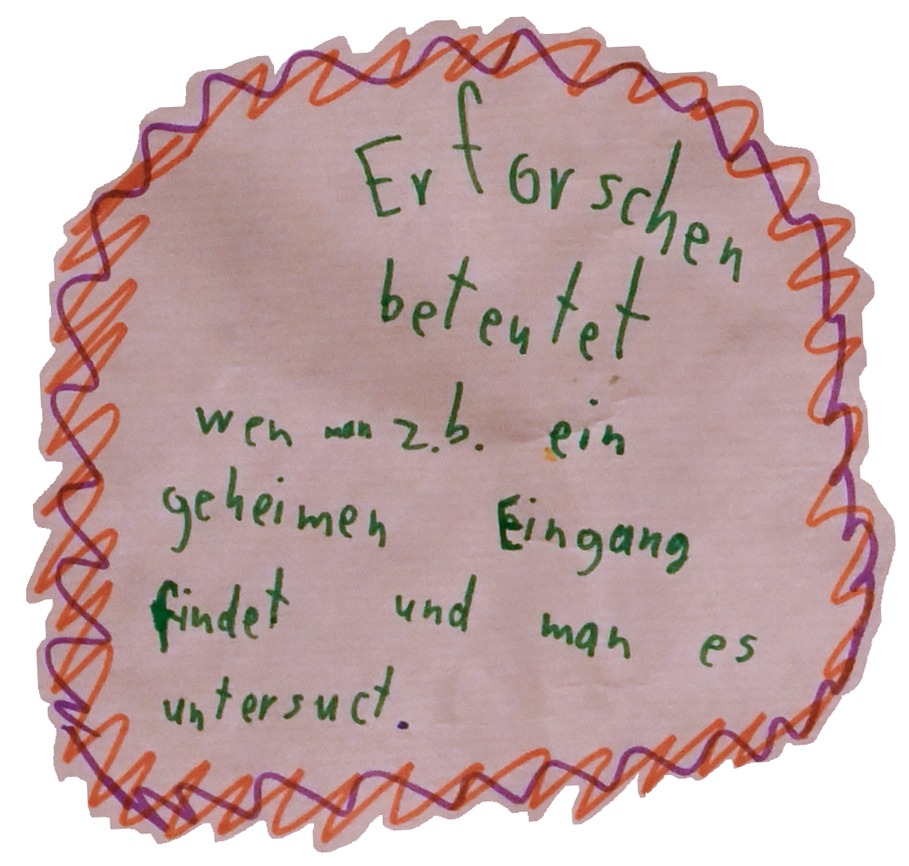 Erforschen
beteutet
wen man z.b. ein
geheimen Eingang
findet und man es
untersuct.